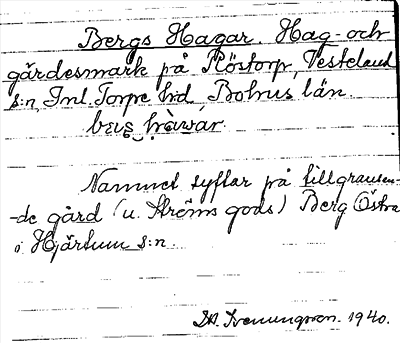 Bergs Hagar. Hag- och
gärdesmark på Röstorp, Vesteland
s:n, Inl. Torpe hd. Bohus län.
Namnet syftar på tillgränsan-
-de gård (u. Ströms gods) Berg Östra
i Hjärtum s:n.
1940.